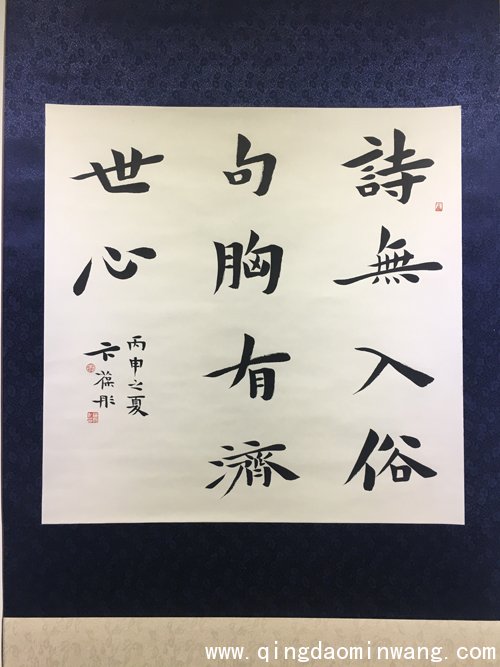 詩無入俗
句胸有濟
世心
丙申之夏
卞葆彤
www.qingdaominwang.com